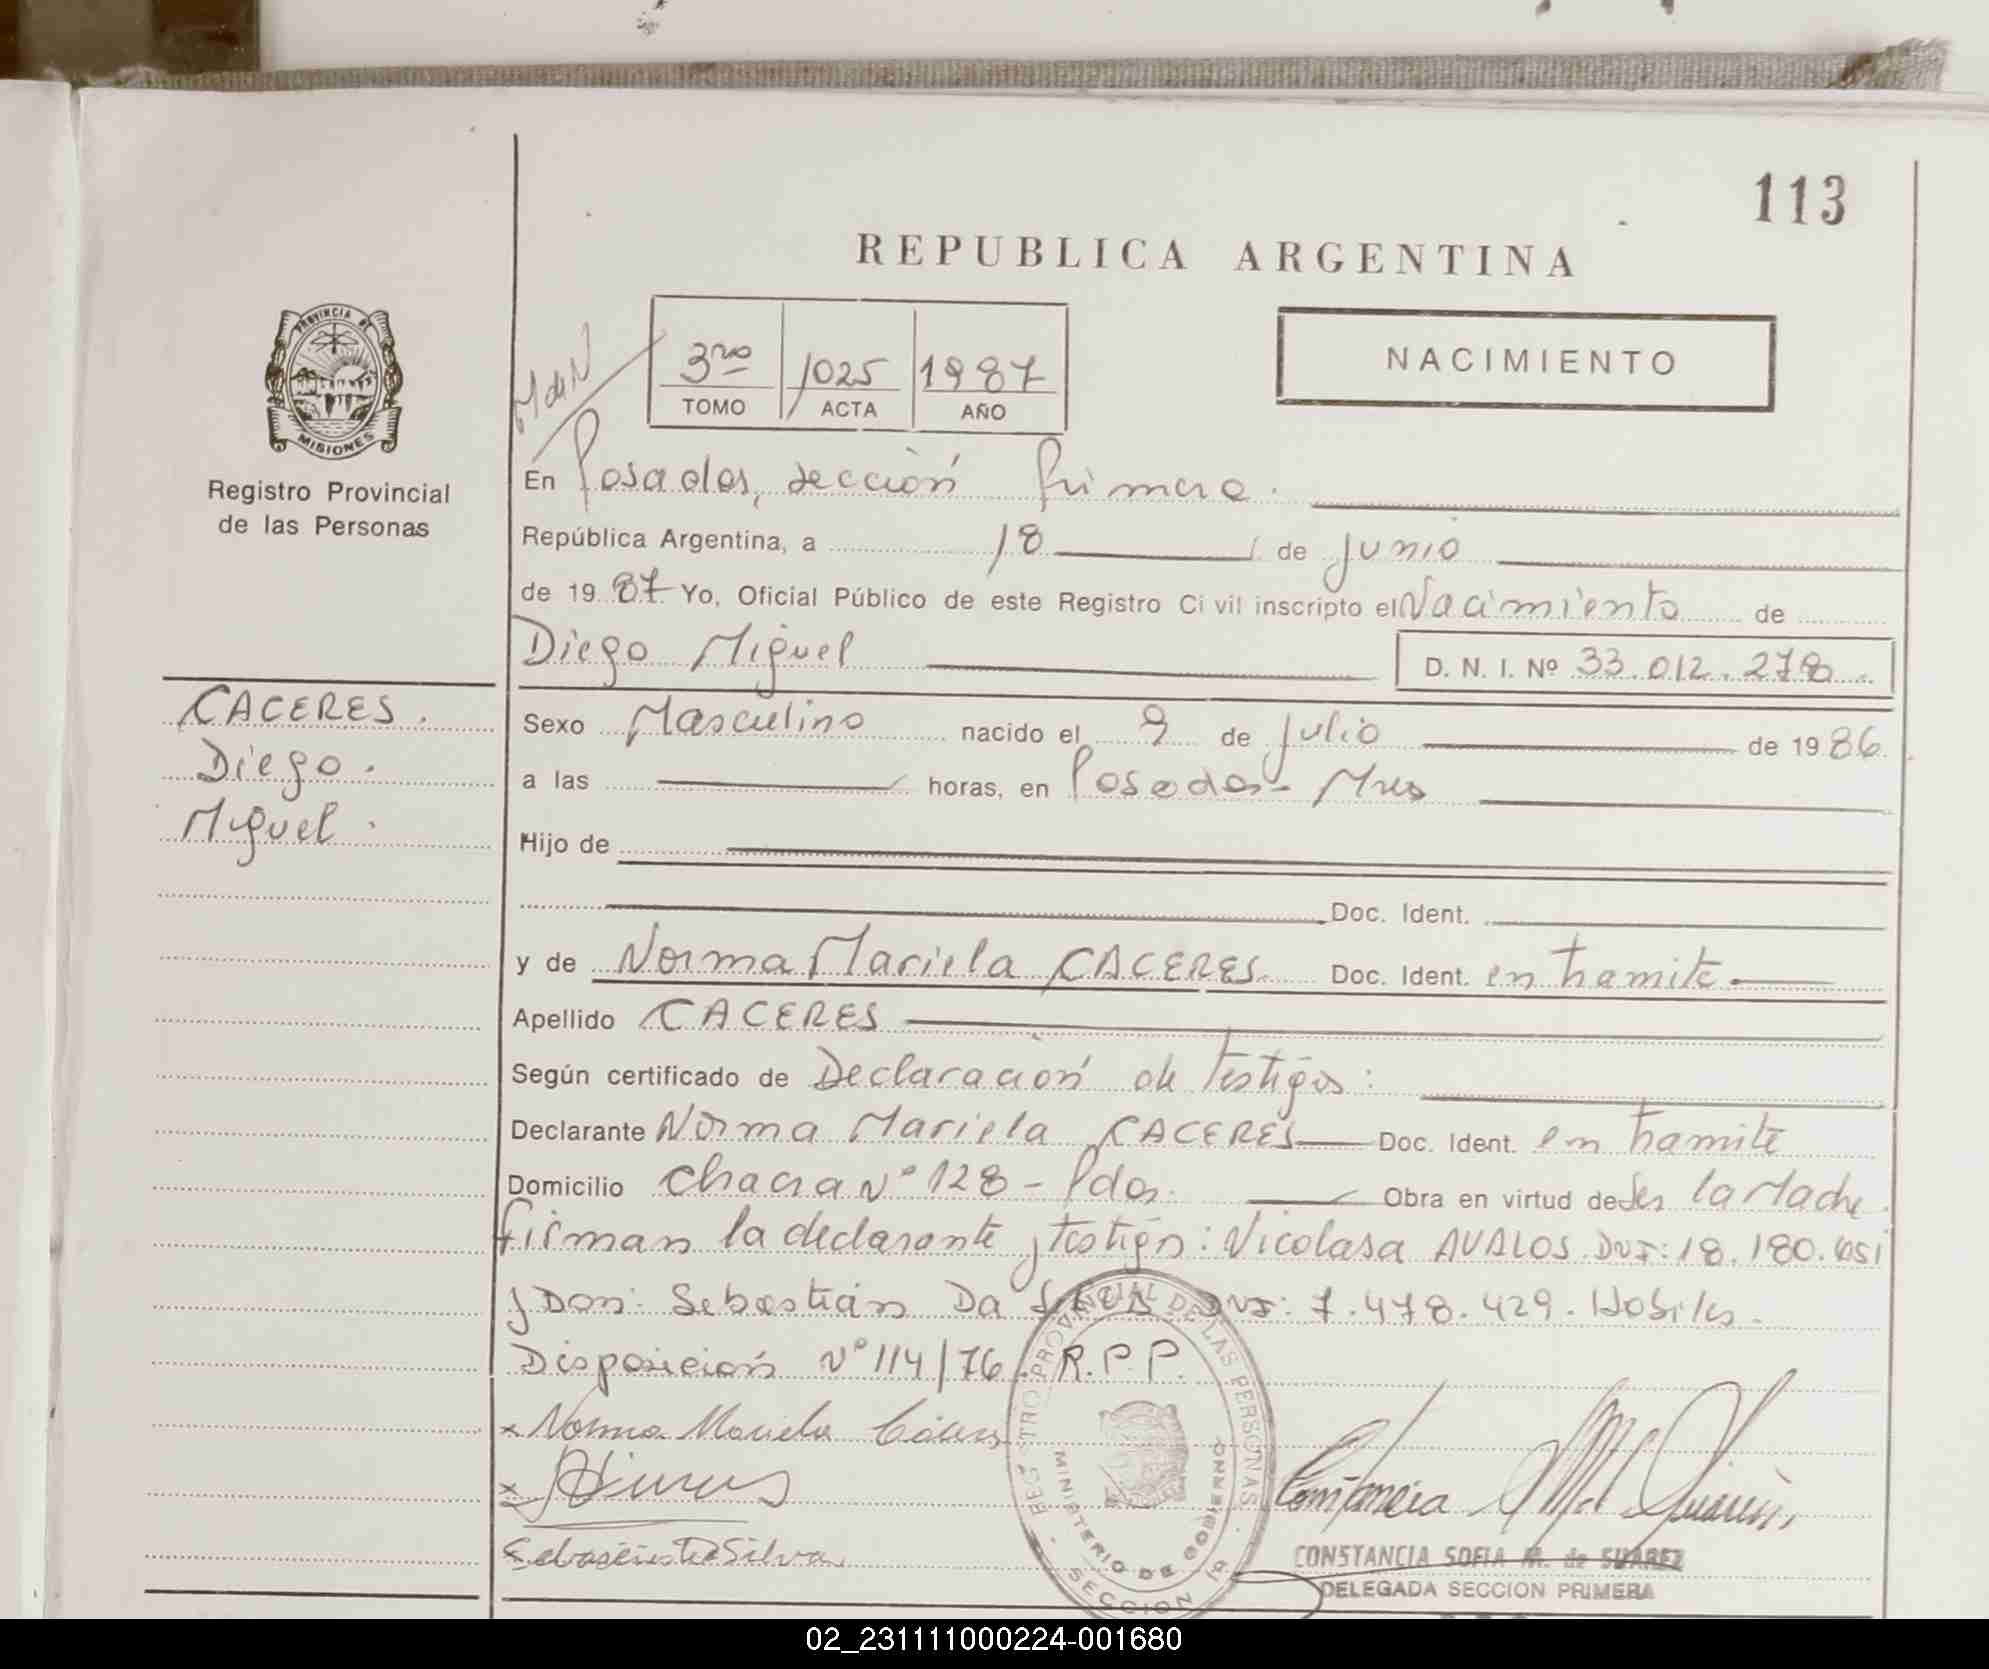 113
REPUBLICA ARGENTINA
PROVINCIA DE
MISIONES
Registro Provincial
de las Personas
M de N
3ro 1025 1987
TOMO ACTA AÑO
NACIMIENTO
En Posadas, sección Primera.
República Argentina, a 18 de junio
de 1987 Yo, Oficial Público de este Registro Civil inscripto el Nacimiento de
Diego Miguel D. N. I. Nº 33.012.278
CACERES.
Diego.
Miguel.
Sexo Masculino nacido el 9 de julio de 1986.
a las horas, en Posadas - Mnes
Hijo de
Doc. Ident.
y de Norma Mariela CACERES Doc. Ident. en tramite
Apellido CACERES
Según certificado de Declaración de Testigos:
Declarante Norma Mariela CACERES Doc. Ident. en tramite
Domicilio Chacra Nº 128 - Pdas. Obra en virtud de Ser la Madre.
firman la declarante y testigos: Nicolasa AVALOS DNI: 18.180.651
y Don: Sebastián Da SILVA DNI: 7.478.429. Habiles.
Disposición Nº 114/76. R.P.P.
x Norma Mariela Cáceres
x
Sebastian Da Silva
REGISTRO PROVINCIAL DE LAS PERSONAS
MINISTERIO DE GOBIERNO
SECCION 1ª
Constancia M de Suarez
CONSTANCIA SOFIA M. de SUAREZ
DELEGADA SECCION PRIMERA
02_231111000224-001680